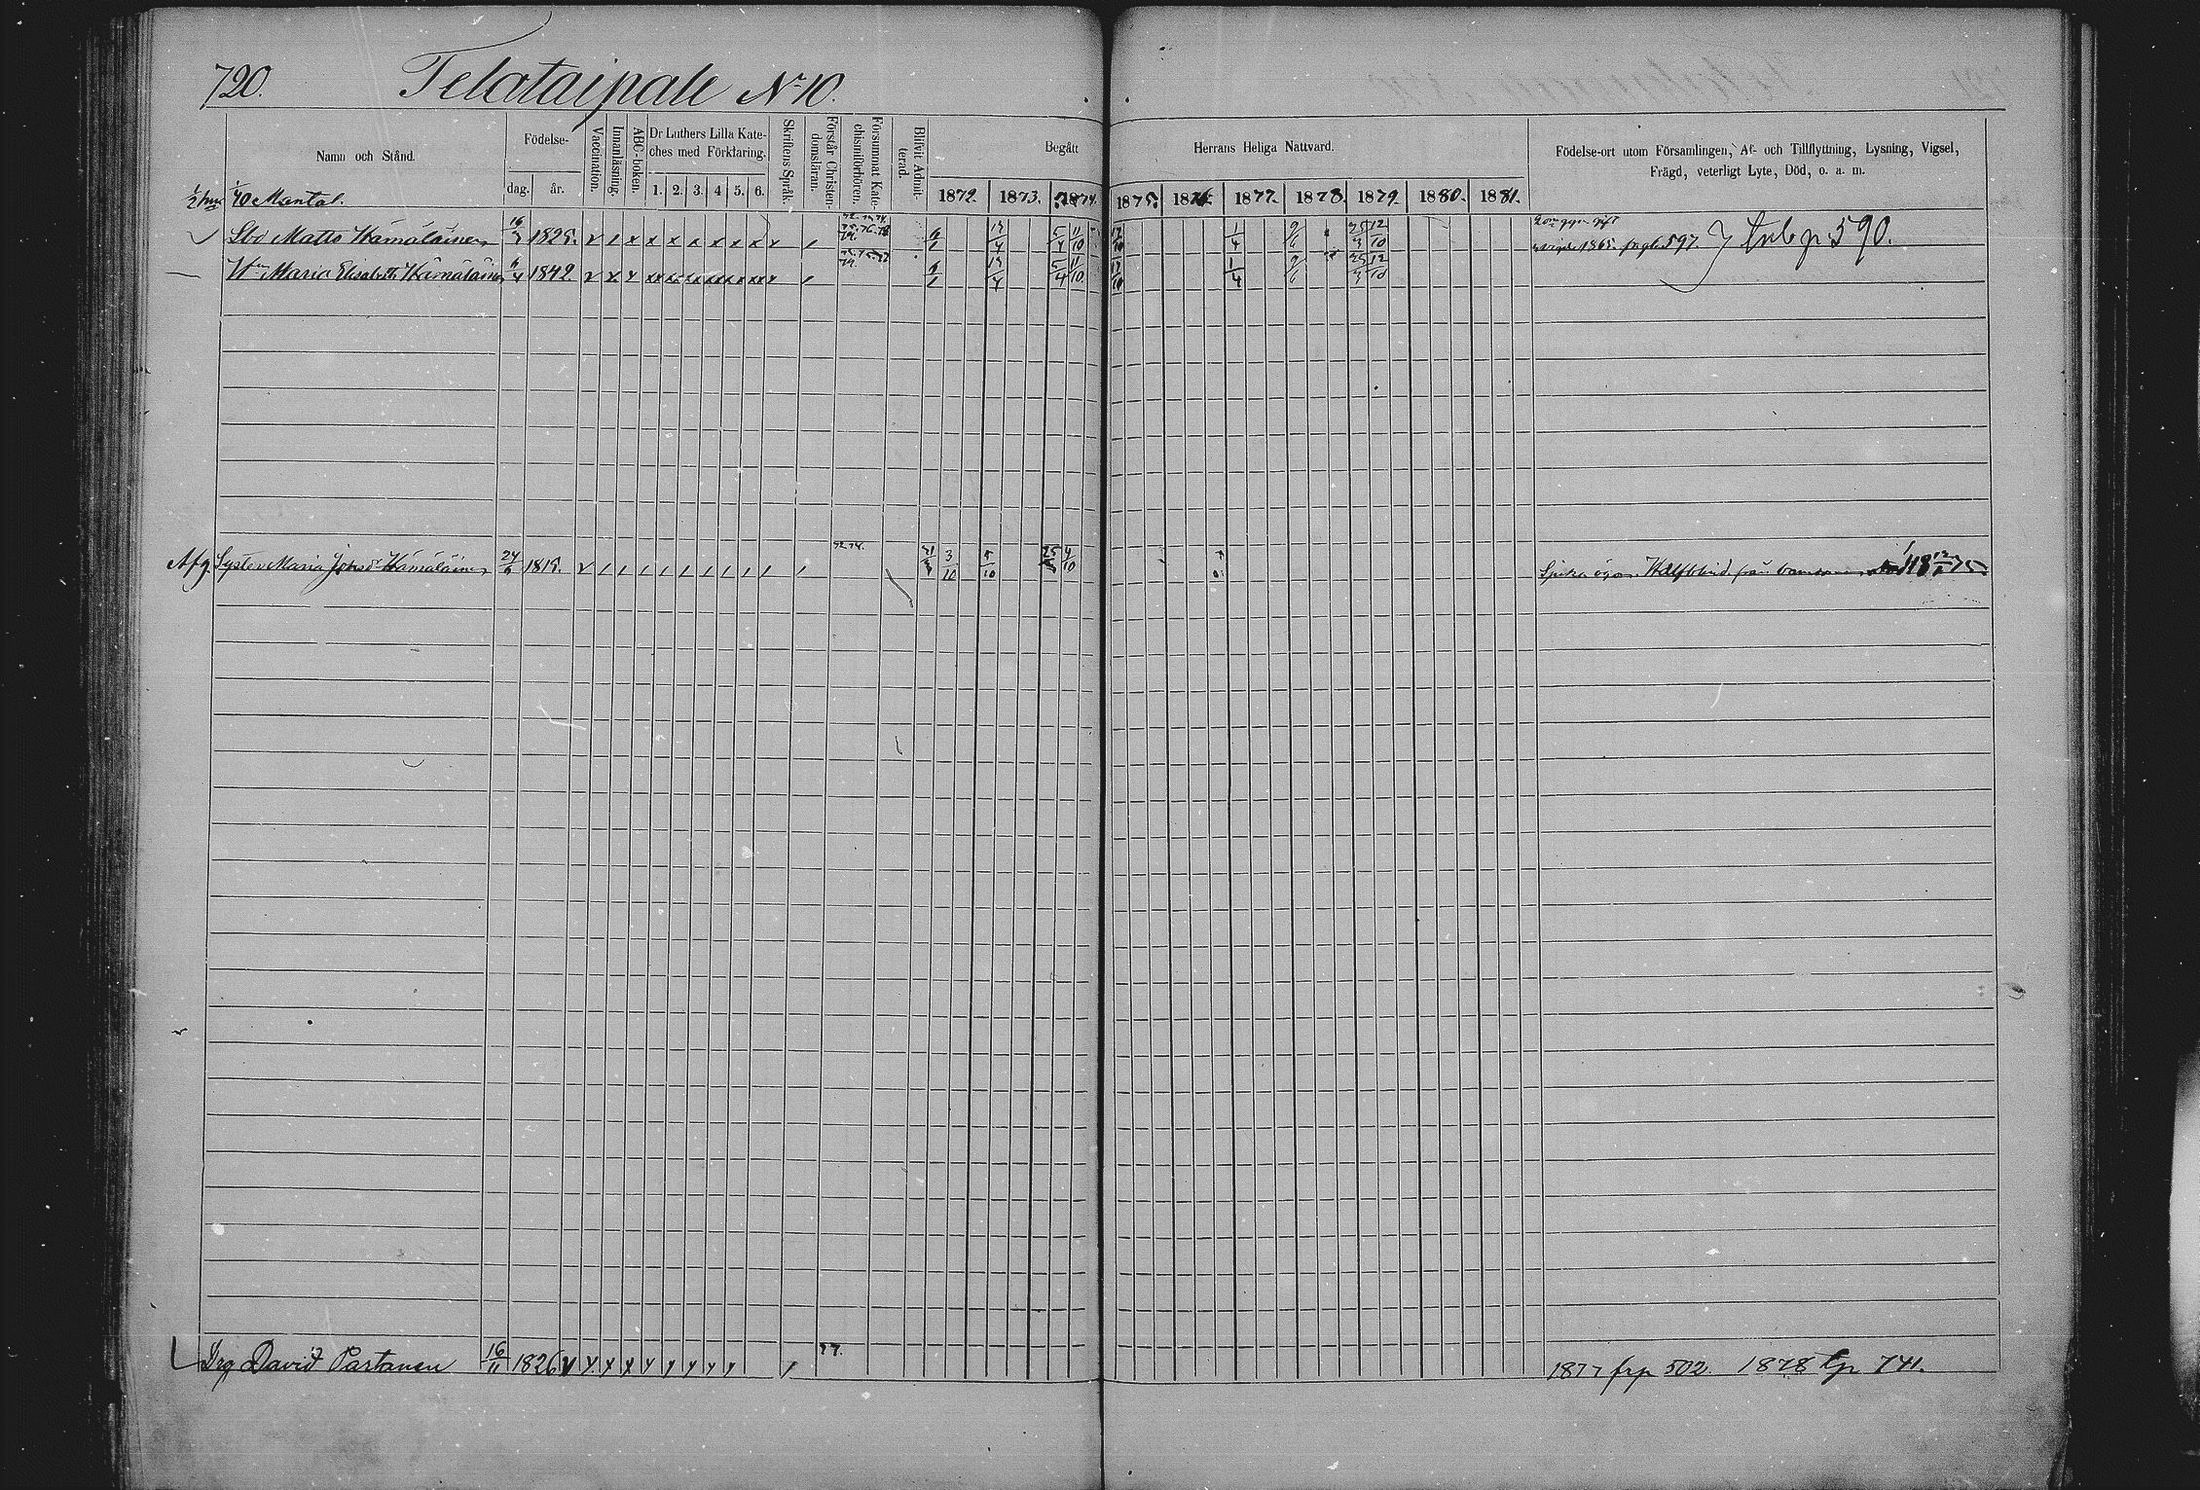 720. Telataipale No 10.
Namn och Stånd.
Födelse-
dag. år.
Vaccination.
Innanläsning.
ABC-boken.
Dr Luthers Lilla Kate-
ches med Förklaring.
1. 2. 3. 4. 5. 6.
Skriftens Språk.
Förstår Christen-
domsläran.
Försummat Kate-
chismiförhören.
Blifvit Admit-
terad.
Begått Herrans Heliga Nattvard.
1872. 1873. 1874. 1875. 1876. 1877. 1878. 1879. 1880. 1881.
Födelse-ort utom Församlingen, Af- och Tillflyttning, Lysning, Vigsel,
Frägd, veterligt Lyte, Död, o. a. m.
1/40 Mantal.
Sbo Matts Hämäläinen 16/3 1825. 6/1 13/4 5/4 11/10 1/4 9/6 25/3 12/10 1865 597 590.
Hu Maria Elisabeth Hämäläinen 6/4 1842. 6/1 13/4 5/4 11/10 1/4 9/6 25/3 12/10
Afg. Syster Maria Johsdr Hämäläinen 24/6 1815. 72.74. 3/10 5/10 4/10 Sjuka ögon. Halfblind från barndomen
Drg David Partanen 16/11 1826 77. 1877 frp 502. 1878 tp 741.